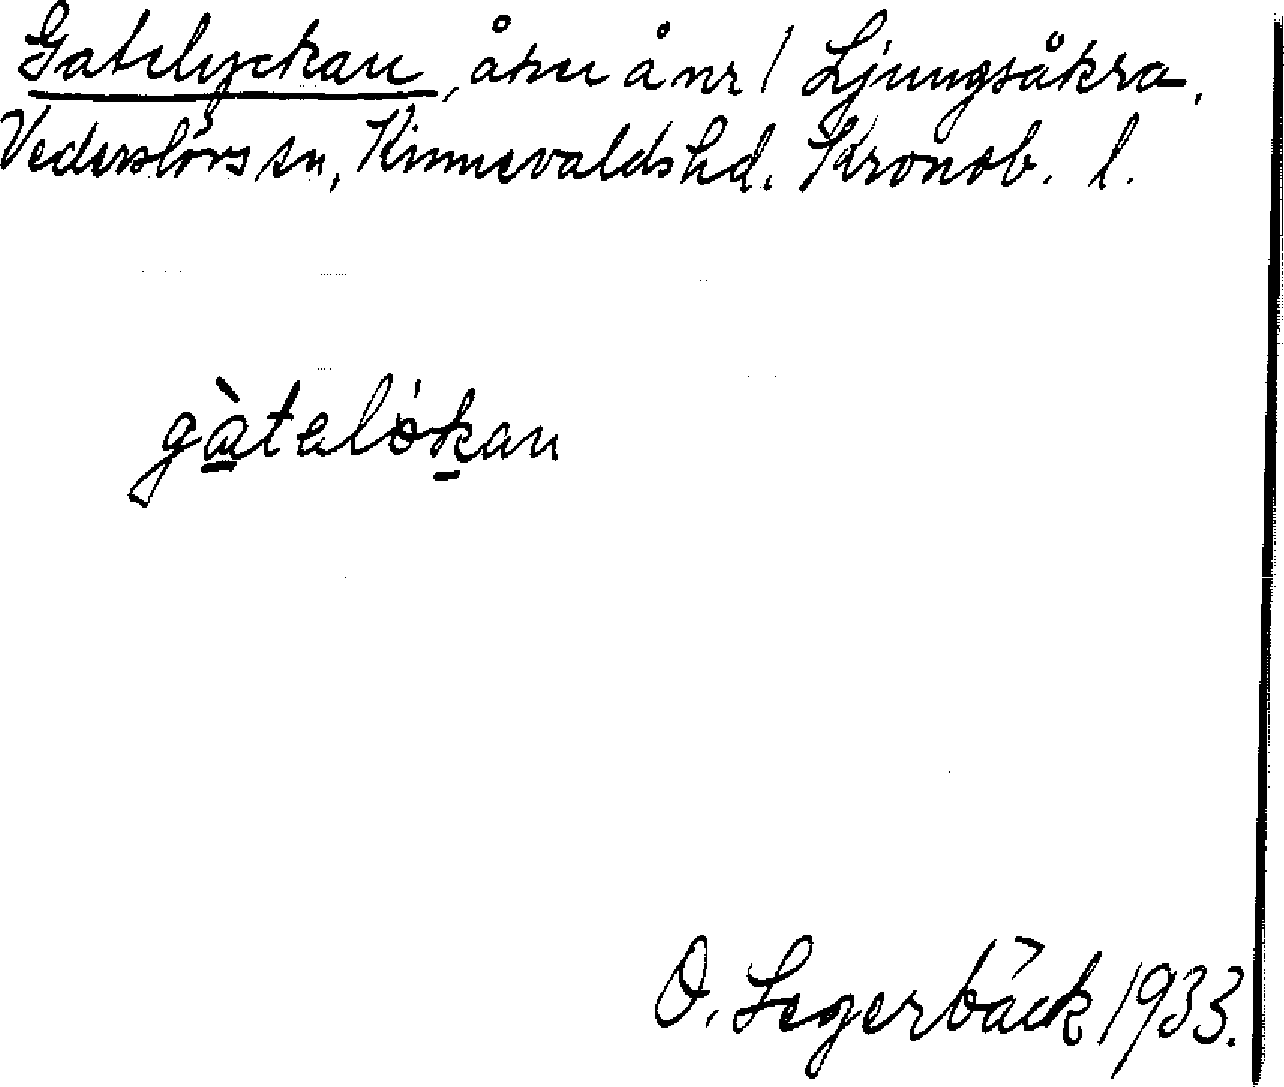 Gatelyckan, åker å nr 1 Ljungsåkra.
Vederslövs sn, Kinnevalds hd. Kronob. l.
gàtelókan
O. Segerbäck 1933.